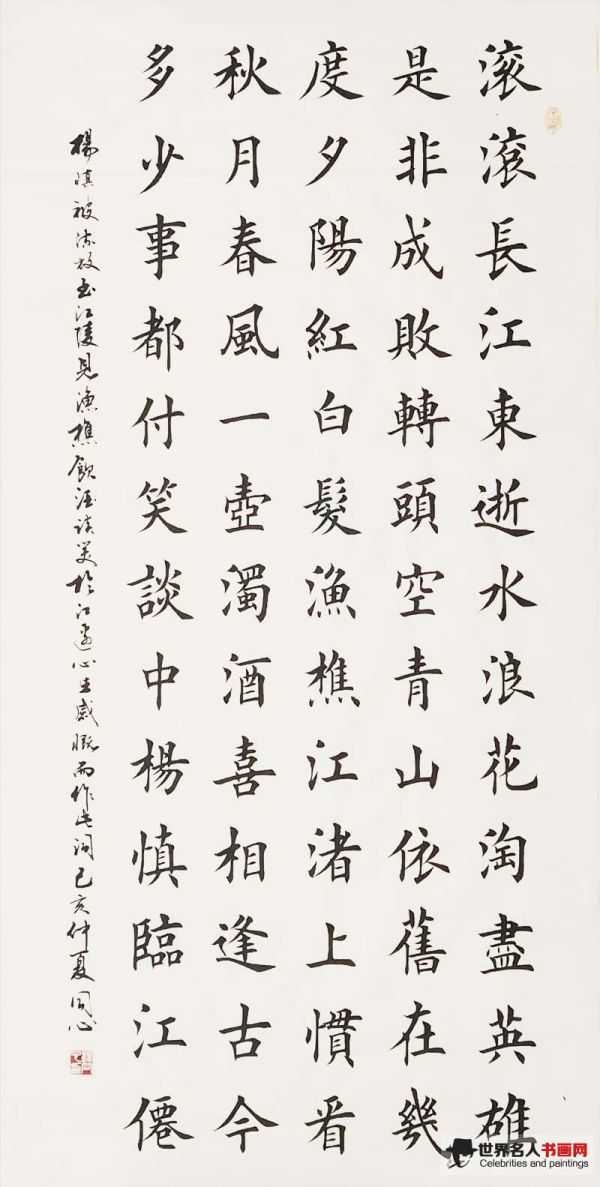 滚滚長江東逝水浪花淘盡英雄
是非成敗轉頭空青山依舊在幾
度夕陽紅白髮漁樵江渚上慣看
秋月春風一壺濁酒喜相逢古今
多少事都付笑談中楊慎臨江僊
楊慎被流放至江陵見漁樵飲酒談笑於江邊心生感慨而作此词己亥仲夏同心
世界名人书画网
Celebrities and paintings